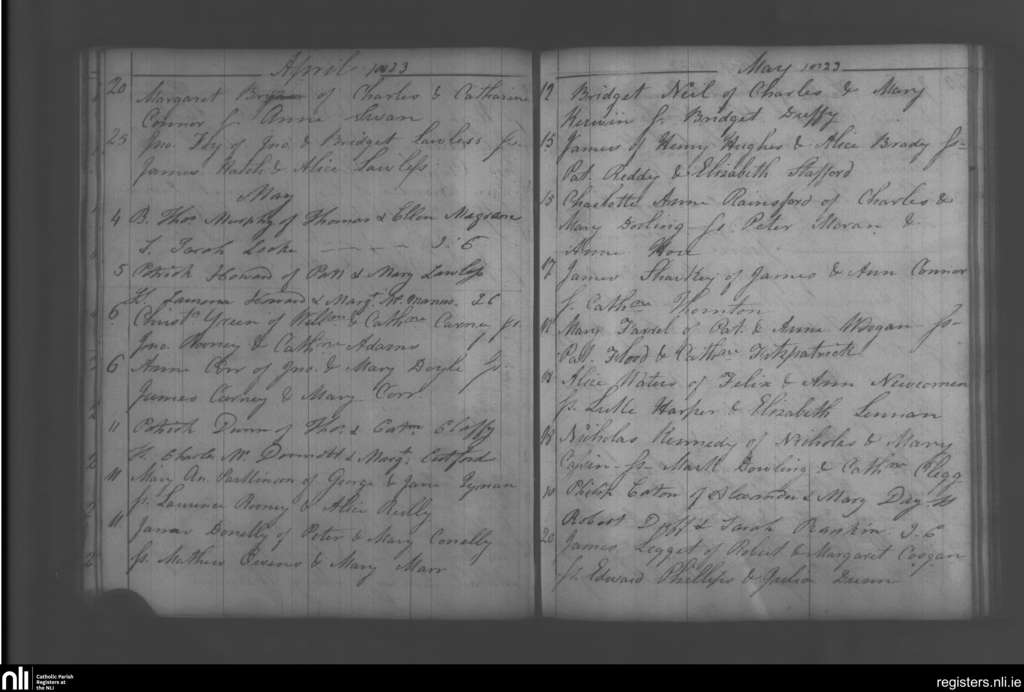 April 1823
20 Margaret Bryan of Charles & Catharine
Connor s. Anne Susan
25 Jno. Fey of Jno. & Bridget Lawless ss.
James Hatch & Alice Lawless
May
4 B. Thos Murphy of Thomas & Ellen
S. Sarah Locke - - - - 2.6
5 Patrick Howard of Patt & Mary Lawless
Howard & Margt. Mc Manus. 26
6 Christr Green of & Cathne Carney ss.
Jno. Rooney & Cathne Adams
6 Anne Corr of Jno. & Mary Doyle Ss-
James Carney & Mary Corr.
11 Patrick Dunn of Thos. &
Charles Mc Dermott & Margt.
11 Mary An. Parkinson of George & Jane
ss. Laurence Rooney & Alice Reilly
11 James Donelly of Peter & Mary Conelly
ss. Mathew Owens & Mary Marr
May 1823
12 Bridget Neil of Charles & Mary
Kirwin ss. Bridget Duffy
15 James of Henry Hughes & Alice Brady Ss-
Pat. Reddy & Elizabeth Stafford
15 Charlotte Anne Rainsford of Charles &
Mary Dowling - ss Peter Moran &
Anne
17 James Sharkey of James & Ann Connor
s. Cathne Thornton
Mary Farrel of Pat. & Anne Wogan - Ss-
Pat. Flood & Cathne Fitzpatrick
18 Alice Waters of Felix & Ann Newcomen
ss. Luke Harper & Elizabeth Lennan
18 Nicholas Kennedy of Nicholas & Mary
- Ss - Mark Dowling & Cathne Clegg
Philip Eaton of Alexander & Mary Day
Robert Duff & Sarah Rankin 2.6
20 James Legget of Robert & Margaret Coogan
ss. Edward Phillips & Julia Dunn
nli
Catholic Parish
Registers at
the NLI
registers.nli.ie